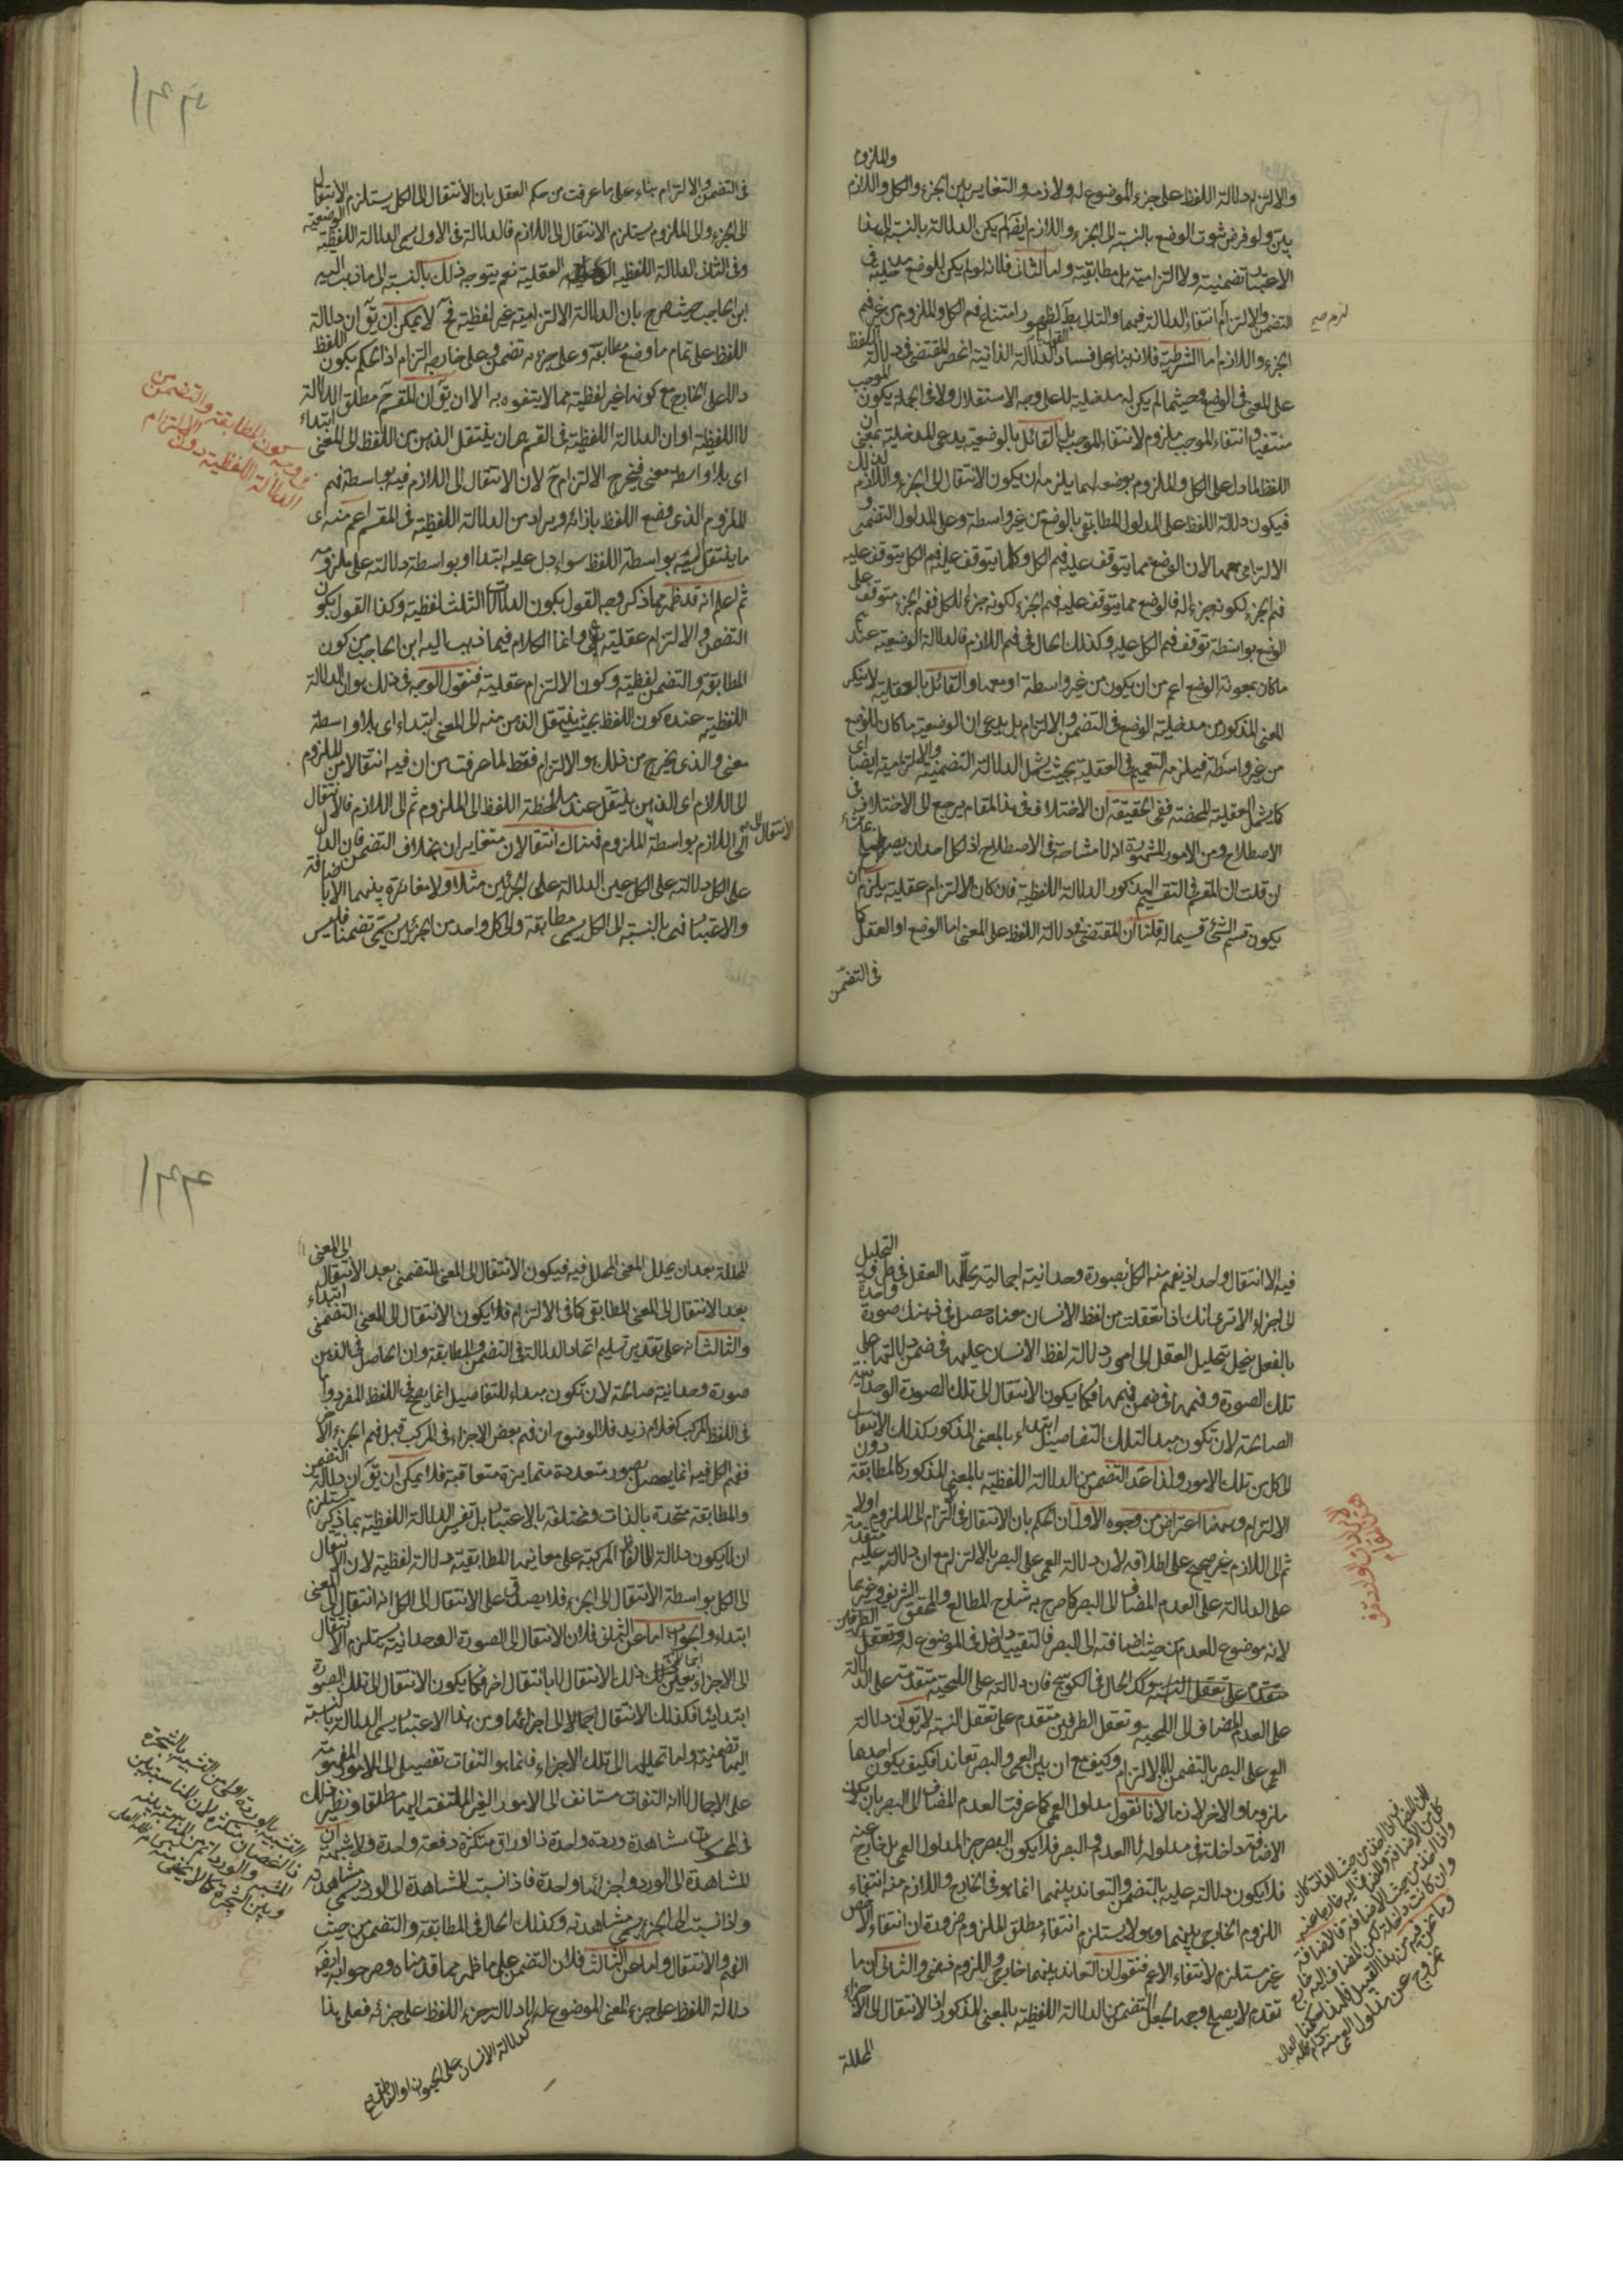 والملزوم
والالتزام دلالة اللفظ على جزء الموضوع له ولازمه والتغاير بين الجزء والكل واللازم
بين ولو فرض ثبوت الوضع بالنسبة الى الجزء واللازم ايضا لم يكن الدلالة بالنسبة الى هذا
الاعتبار تضمنية ولا التزامية بل مطابقية واما الثاني فلانه لو لم يكن للوضع مدخلية في
التضمن والالتزام انتفاء الدلالة فيهما والتالى بط لظهور امتناع فهم الكل والملزوم من غير فهم
الجزء واللازم اما الشرطية فلانه بناء على فساد القول بالدلالة الذاتية انحصر المقتضى في دلالة اللفظ
على المعنى في الوضع فحيثما لم يكن له مدخلية لا على وجه الاستقلال ولا في الجملة يكون الموجب
منتفيا وانتفاء الموجب ملزوم لانتفاء الموجب بل القائل بالوضعية يدعى المدخلية بمعنى ان
اللفظ لما دل على الكل والملزوم بوضعه لهما يلزمه ان يكون الانتقال الى الجزء واللازم لذلك
فيكون دلالة اللفظ على المدلول المطابقى بالوضع من غير واسطة وعلى المدلول التضمنى و
الالتزامى معها لان الوضع مما يتوقف عليه فهم الكل وكلما يتوقف عليه فهم الكل يتوقف عليه
فهم الجزء لكونه جزء له فالوضع مما يتوقف عليه فهم الجزء لكونه جزء للكل ففهم الجزء متوقف على
الوضع بواسطة توقف فهم الكل عليه وكذلك الحال في فهم اللازم فالدلالة الوضعية عندهم
ما كان بمعونة الوضع اعم من ان يكون من غير واسطة او معها والقائل بالعقلية لا ينكر
المعنى المذكور من مدخلية الوضع في التضمن والالتزام بل يدعى ان الوضعية ما كان للوضع
من غير واسطة فيلزمه التعميم في العقلية بحيث يشمل الدلالة التضمنية والالتزامية ايضا
كما يشمل العقلية المحضة ففى الحقيقة ان الاختلاف في هذا المقام يرجع الى الاختلاف في
الاصطلاح ومن الامور المشهورة انه لا مشاحة في الاصطلاح اذ لكل احد ان يصطلح
ان قلت ان المقسم في التقسيم المذكور الدلالة اللفظية فان كان الالتزام عقلية يلزم ان
يكون قسم الشئ قسيما له قلنا ان المقتضى في دلالة اللفظ على المعنى اما الوضع او العقل كما
في التضمن
في التضمن والالتزام بناء على ما عرفت من حكم العقل بان الانتقال الى الكل يستلزم الانتقال
الى الجزء والى الملزوم يستلزم الانتقال الى اللازم فالدلالة في الاول يسمى الدلالة اللفظية الوضعية
وفى الثانى الدلالة اللفظية العقلية نعم يتوجه ذلك بالنسبة الى ما ذهب اليه
ابن الحاجب حيث صرح بان الدلالة الالتزامية غير لفظية فح لا يمكن ان يق ان دلالة
اللفظ على تمام ما وضع مطابقة وعلى جزءه تضمن وعلى خارجه التزام اذ الحكم بكون اللفظ
دالا على الخارج مع كونها غير لفظية مما لا يتفوه به الا ان يق ان المقسم مطلق الدلالة
لا اللفظية او ان الدلالة اللفظية في القسم هى ان ينتقل الذهن من اللفظ الى المعنى ابتداء
اى بلا واسطة معنى فيخرج الالتزام ح لان الانتقال الى اللازم فيه بواسطة فهم
الملزوم الذى وضع اللفظ بازائه ويراد من الدلالة اللفظية في المقسم اعم منه اى
ما ينتقل اليه بواسطة اللفظ سواء دل عليه ابتداء او بواسطة دلالته على ملزومه
ثم اعلم انه قد ظهر مما ذكر وجه القول بكون الدلالات الثلث لفظية وكذا القول بكون
التضمن والالتزام عقلية وانما الكلام فيما ذهب اليه ابن الحاجب من كون
المطابقة والتضمن لفظية وكون الالتزام عقلية فنقول الوجه في ذلك هو ان الدلالة
اللفظية عنده كون اللفظ بحيث ينتقل الذهن منه الى المعنى ابتداء اى بلا واسطة
معنى والذى يخرج من ذلك هو الالتزام فقط لما عرفت من ان فيه انتقالا من الملزوم
الى اللازم اى الذهن ينتقل عند ملاحظة اللفظ الى الملزوم ثم الى اللازم فالانتقال
الى اللازم بواسطة الملزوم فهناك انتقالان متغايران بخلاف التضمن فان الدال
على الكل دلالته على الكل عين الدلالة على الجزئين مثلا ولا مغايرة بينهما الا بالاضافة
والاعتبار فهى بالنسبة الى الكل يسمى مطابقة والى كل واحد من الجزئين يسمى تضمنا فليس
فيه الا انتقال واحد اذ يفهم منه الكل بصورة وحدانية اجمالية يحللها العقل في ظرف التحليل
الى اجزاء الا ترى انك اذا تعقلت من لفظ الانسان معناه حصل في ذهنك صورة واحدة
بالفعل ينحل بتحليل العقل الى امور دلالة لفظ الانسان عليها في ضمن دلالتها على
تلك الصورة وفهمها في ضمن فهمها فكما يكون الانتقال الى تلك الصورة الوحدانية
الصالحة لان تكون مبدا لتلك التفاصيل ابتداء بالمعنى المذكور كذلك الانتقال
الى كل من تلك الامور ولذا عد التضمن من الدلالة اللفظية بالمعنى المذكور كالمطابقة دون
الالتزام وههنا اعتراض من وجوه الاول ان الحكم بان الانتقال في الالتزام الى الملزوم اولا
ثم الى اللازم غير صحيح على اطلاقه لان دلالة العمى على البصر بالالتزام مع ان دلالته عليه متقدمة
على الدلالة على العدم المضاف الى البصر كما صرح به شارح المطالع والمحقق الشريف وغيرهما
لانه موضوع للعدم من حيث اضافته الى البصر فالتقييد داخل في الموضوع له وتعقل الطرفين
متقدم على تعقل النسبة وكذا الحال في الكوسج فان دلالته على اللحية متقدمة على الدلالة
على العدم المضاف الى اللحية وتعقل الطرفين متقدم على تعقل النسبة لا يق ان دلالة
العمى على البصر بالتضمن لا بالالتزام وكيف مع ان بين العمى والبصر تعاندا فكيف يكون احدهما
ملزوما والاخر لازما لانا نقول مدلول العمى كما عرفت العدم المضاف الى البصر بان يكون
الاضافة داخلة في مدلوله لا العدم والبصر فلا يكون البصر جزء لمدلول العمى بل خارج عنه
فلا يكون دلالته عليه بالتضمن والتعاند بينهما انما هو في الخارج واللازم منه انتفاء
اللزوم الخارجى بينهما وهو لا يستلزم انتفاء مطلق اللزوم ضرورة ان انتفاء الاخص
غير مستلزم لانتفاء الاعم فنقول ان التعاند بينهما خارجى واللزوم ذهنى والثانى ان ما
تقدم لا يصلح وجها لجعل التضمن من الدلالة اللفظية بالمعنى المذكور اذ الانتقال الى الاجزاء
المحللة
المحللة بعد ان يحلل المعنى المحلل فيه فيكون الانتقال الى المعنى التضمنى بعد الانتقال الى المعنى
بعد الانتقال الى المعنى المطابقى كما في الالتزام فلا يكون الانتقال الى المعنى التضمنى ابتداء
والثالث انه على تقدير تسليم اتحاد الدلالة في التضمن والمطابقة وان الحاصل في الذهن
صورة وحدانية صالحة لان تكون مبداء للتفاصيل انما يصح في اللفظ المفرد واما
في اللفظ المركب كغلام زيد فلا لوضوح ان فهم بعض الاجزاء في المركب قبل فهم الجزء الاخر
ففهم الكل فيه انما يحصل بصور متعددة متمايزة متعاقبة فلا يمكن ان يق ان دلالة التضمن
والمطابقة متحدة بالذات ومختلفة بالاعتبار بل تفسير الدلالة اللفظية بما ذكر يستلزم
ان لا يكون دلالة الالفاظ المركبة على معانيها المطابقية دلالة لفظية لان الانتقال
الى الكل بواسطة الانتقال الى الجزء فلا يصدق على الانتقال الى الكل انه انتقال الى المعنى
ابتداء والجواب اما عن الثانى فلان الانتقال الى الصورة الوحدانية يستلزم الانتقال
الى الاجزاء بعين ذلك الانتقال لا بانتقال اخر فكما يكون الانتقال الى تلك الصورة
ابتدائيا فكذلك الانتقال اجمالا الى اجزائها ومن هذا الاعتبار يسمى الدلالة بالنسبة
اليها تضمنية واما تحليلها الى تلك الاجزاء فانما هو التفات تفصيلى الى الامور المفهومة
على الاجمال لا انه التفات مستانف الى الامور الغير الملتفت اليها مطلقا ونظير ذلك
في المحسوسات مشاهدة وردة واحدة ذا اوراق متكثرة دفعة واحدة ولا شبهة ان
المشاهدة الى الورد والى اجزائها واحدة فاذا نسبت المشاهدة الى الورد يسمى مشاهدته
واذا نسبت الى الجزء يسمى مشاهدته وكذلك الحال في المطابقة والتضمن من حيث
الفهم والانتقال واما عن الثالث فلان التضمن على ما ظهر مما قدمناه وصرحوا به ايضا
دلالة اللفظ على جزء المعنى الموضوع له لا دلالة جزء اللفظ على جزئه فعلى هذا